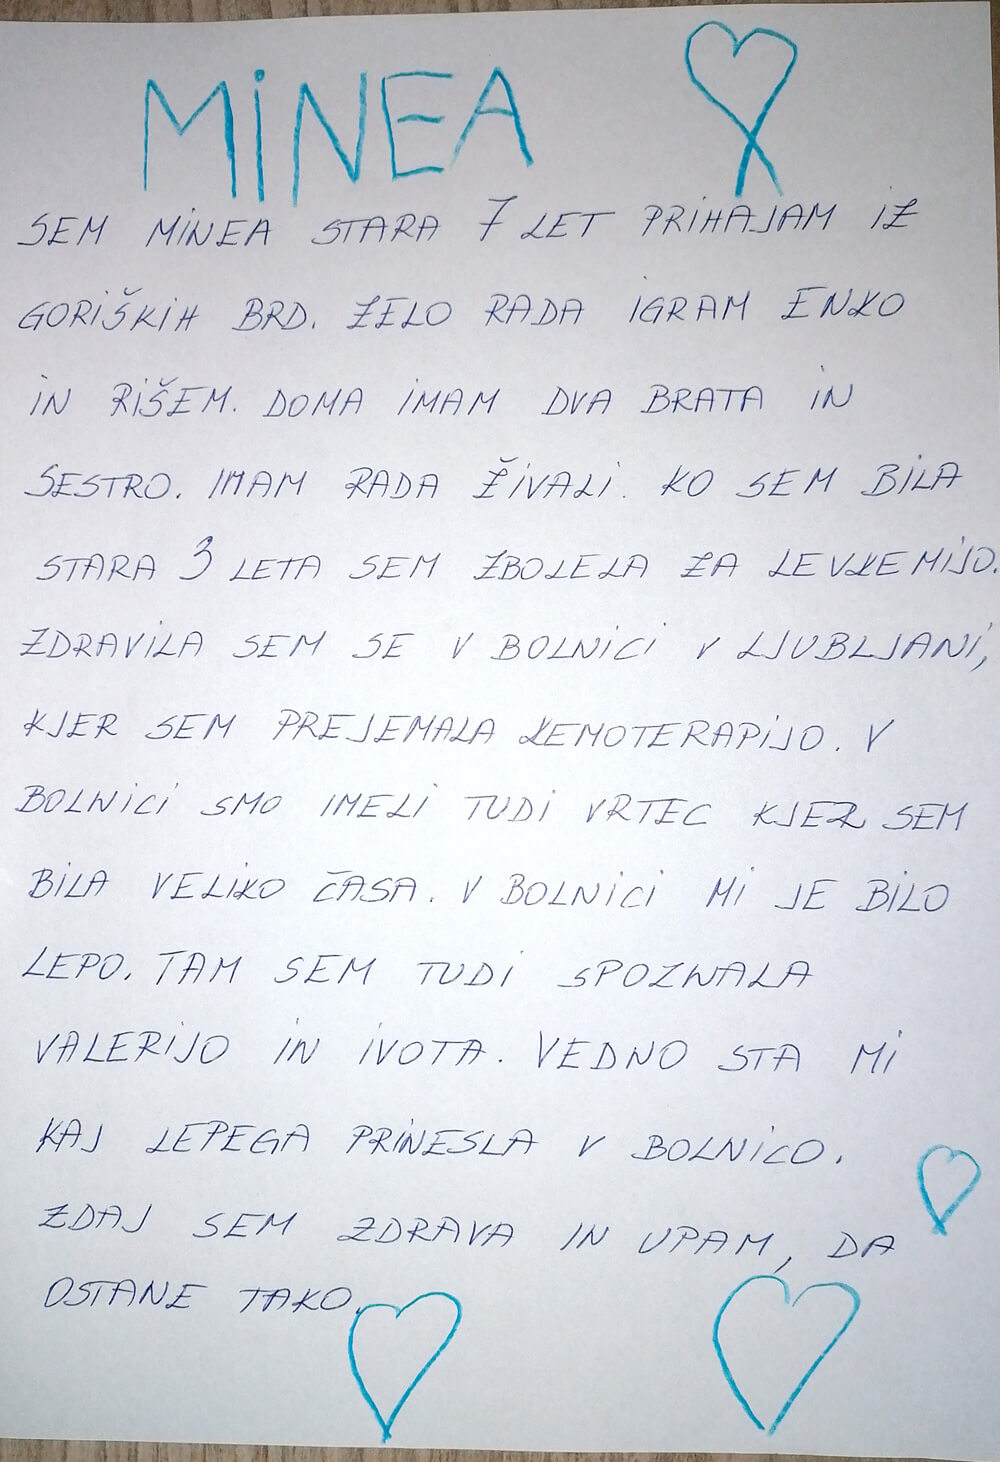 MiNEA
SEM MiNEA STARA 7 LET PRIHAJAM IZ
GORIŠKIH BRD. ZELO RADA IGRAM ENKO
IN RIŠEM. DOMA IMAM DVA BRATA IN
SESTRO. IMAM RADA ŽIVALI. KO SEM BILA
STARA 3 LETA SEM ZBOLELA ZA LEVKEMIJO.
ZDRAVILA SEM SE V BOLNICI V LJUBLJANI,
KJER SEM PREJEMALA KEMOTERAPIJO. V
BOLNICI SMO IMELI TUDI VRTEC KJER SEM
BILA VELIKO ČASA. V BOLNICI MI JE BILO
LEPO. TAM SEM TUDI SPOZNALA
VALERIJO IN IVOTA. VEDNO STA MI
KAJ LEPEGA PRINESLA V BOLNICO.
ZDAJ SEM ZDRAVA IN UPAM, DA
OSTANE TAKO.